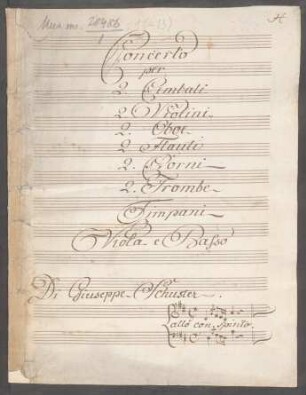 Mus. ms. 20456
1
Concerto
per
2. Cimbali
2. Violini
2. Oboi
2. Flauti
2. Corni
2. Trombe
Timpani
Viola e Basso
Di Giuseppe Schuster.
allo con spirito